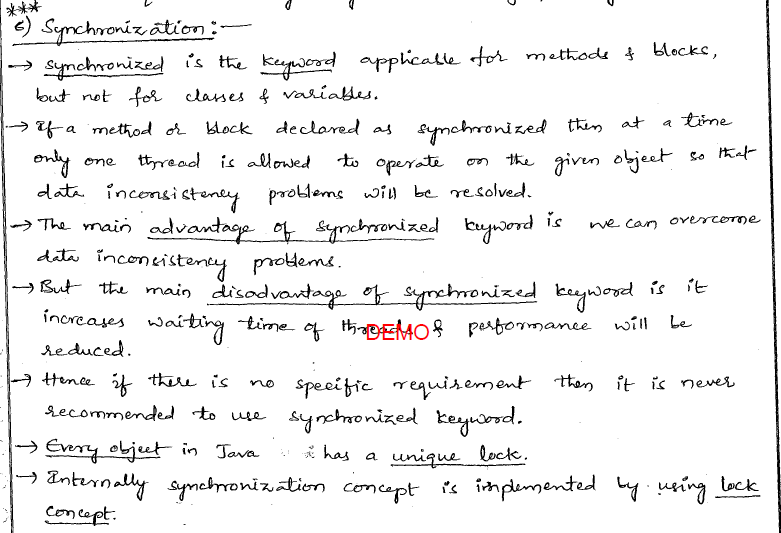 ***
6) Synchronization:—
→ synchronized is the keyword applicable for methods & blocks,
but not for classes & variables.
→ If a method or block declared as synchronized then at a time
only one thread is allowed to operate on the given object so that
data inconsistency problems will be resolved.
→ The main advantage of synchronized keyword is we can overcome
data inconsistency problems.
→ But the main disadvantage of synchronized keyword is it
increases waiting time of threads & performance will be
DEMO
reduced.
→ Hence if there is no specific requirement then it is never
recommended to use synchronized keyword.
→ Every object in Java has a unique lock.
→ Internally synchronization concept is implemented by using lock
concept.